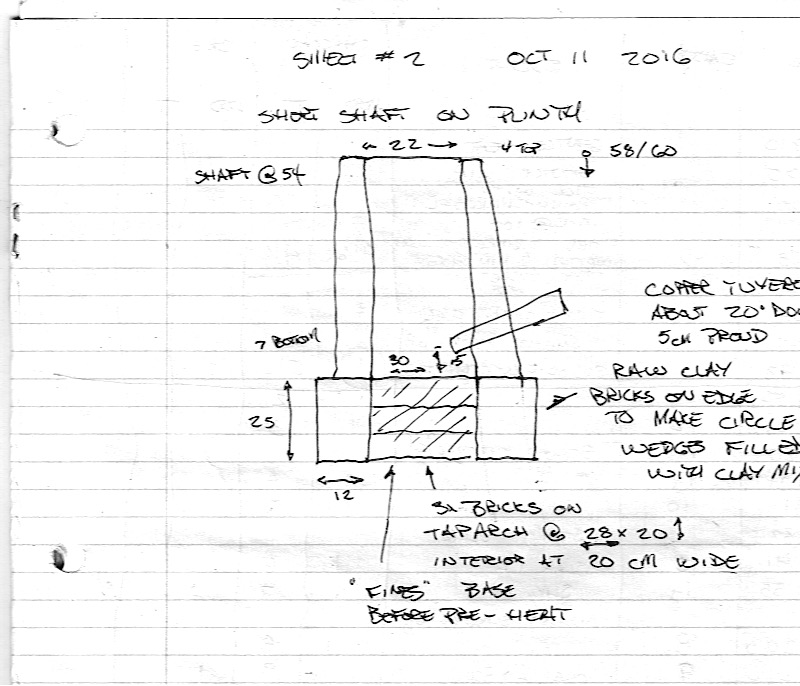 SHEET # 2 OCT 11 2016
SHORT SHAFT ON PLINTH
22
4 TOP
58/60
SHAFT @ 54
COPPER TUYERE
ABOUT 20° DO
5CM PROUD
7 BOTTOM
30
15
RAW CLAY
BRICKS ON EDGE
TO MAKE CIRCLE
WEDGES FILLED
WITH CLAY MI
25
12
BRICKS ON
TAP ARCH @ 28 x 20
INTERIOR AT 20 CM WIDE
"FINES" BASE
BEFORE PRE-HEAT